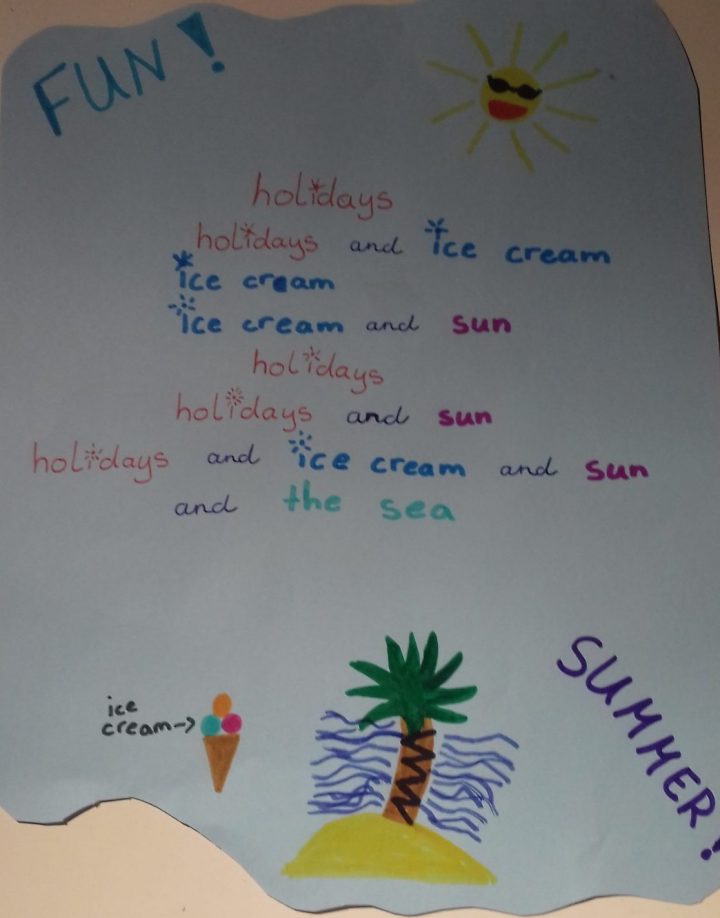 FUN!
holidays
holidays and ice cream
ice cream
ice cream and sun
holidays
holidays and sun
holidays and ice cream and sun
and the sea
ice
cream->
SUMMER!